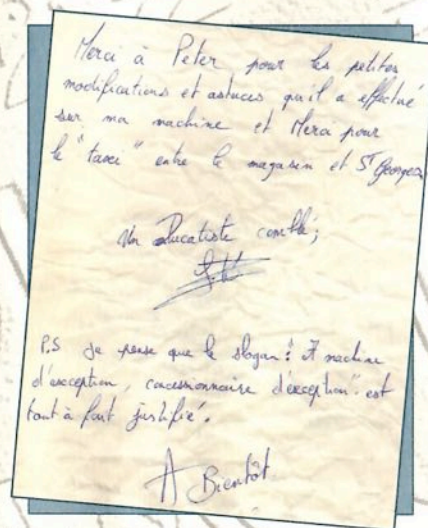 Merci à Peter pour les petites
modifications et astuces qu'il a effectué
sur ma machine et Merci pour
le "taxi" entre le magasin et St Georges
Un Ducatiste comblé,
P.S Je pense que le slogan : "A machine
d'exception, concessionnaire d'exception" est
tout à fait justifié.
A Bientôt